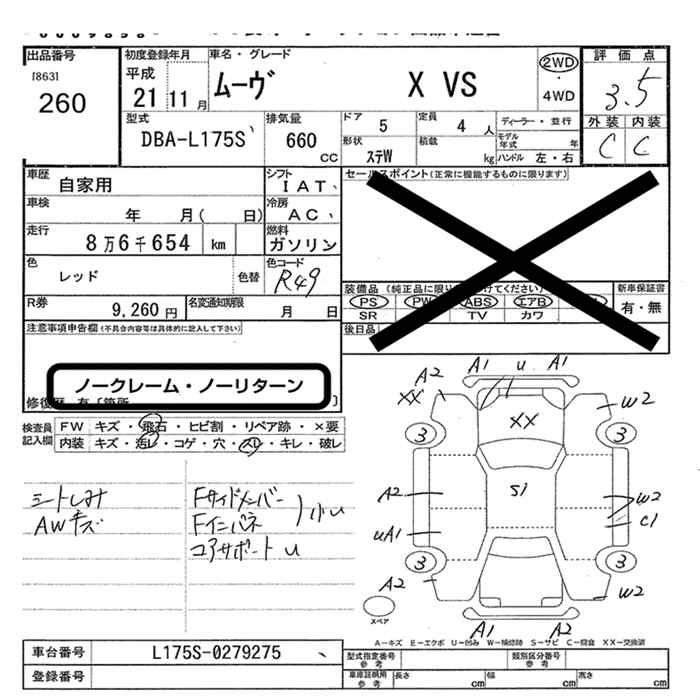 出品番号
[863]
260
初度登録年月
平成
21 11 月
車名・グレード
ムーヴ X VS
2WD
・
4WD
評価点
3.5
外装 内装
C C
型式
DBA-L175S
排気量
660
cc
ドア
5
定員
4 人
ディーラー・並行
形状
ステW
積載
kg
モデル年式 年
ハンドル 左・右
車歴
自家用
シフト
IAT、
車検
年 月( 日)
冷房
AC、
走行
8万6千654 km
燃料
ガソリン
色
レッド
色替
色コード
R49
R券
9,260 円
名変通知期限
月 日
セールスポイント(正常に機能するものに限ります)
装備品
PS PW ABS エアB
SR TV カワ
後日品
新車保証書
有・無
注意事項申告欄(不具合内容等は具体的に記入して下さい)
ノークレーム・ノーリターン
検査員記入欄
FW キズ・飛石・ヒビ割・リペア跡・×要
内装 キズ・汚レ・コゲ・穴・スレ・キレ・破レ
シートしみ
AWキズ
Fサイドメンバー
Fインパネ
小u
コアサポートu
A1 u A1
A2
XX
W2
3 3
XX
A2
S1
W2
C1
uA1
3 3
A2
W2
A1 A2
スペア
A−キズ E−エクボ U−凹み W−補修跡 S−サビ C−腐食 XX−交換済
車台番号
L175S-0279275
登録番号
型式指定番号
参考
類別区分番号
参考
車庫証明用
参考
長さ cm
幅 cm
高さ cm